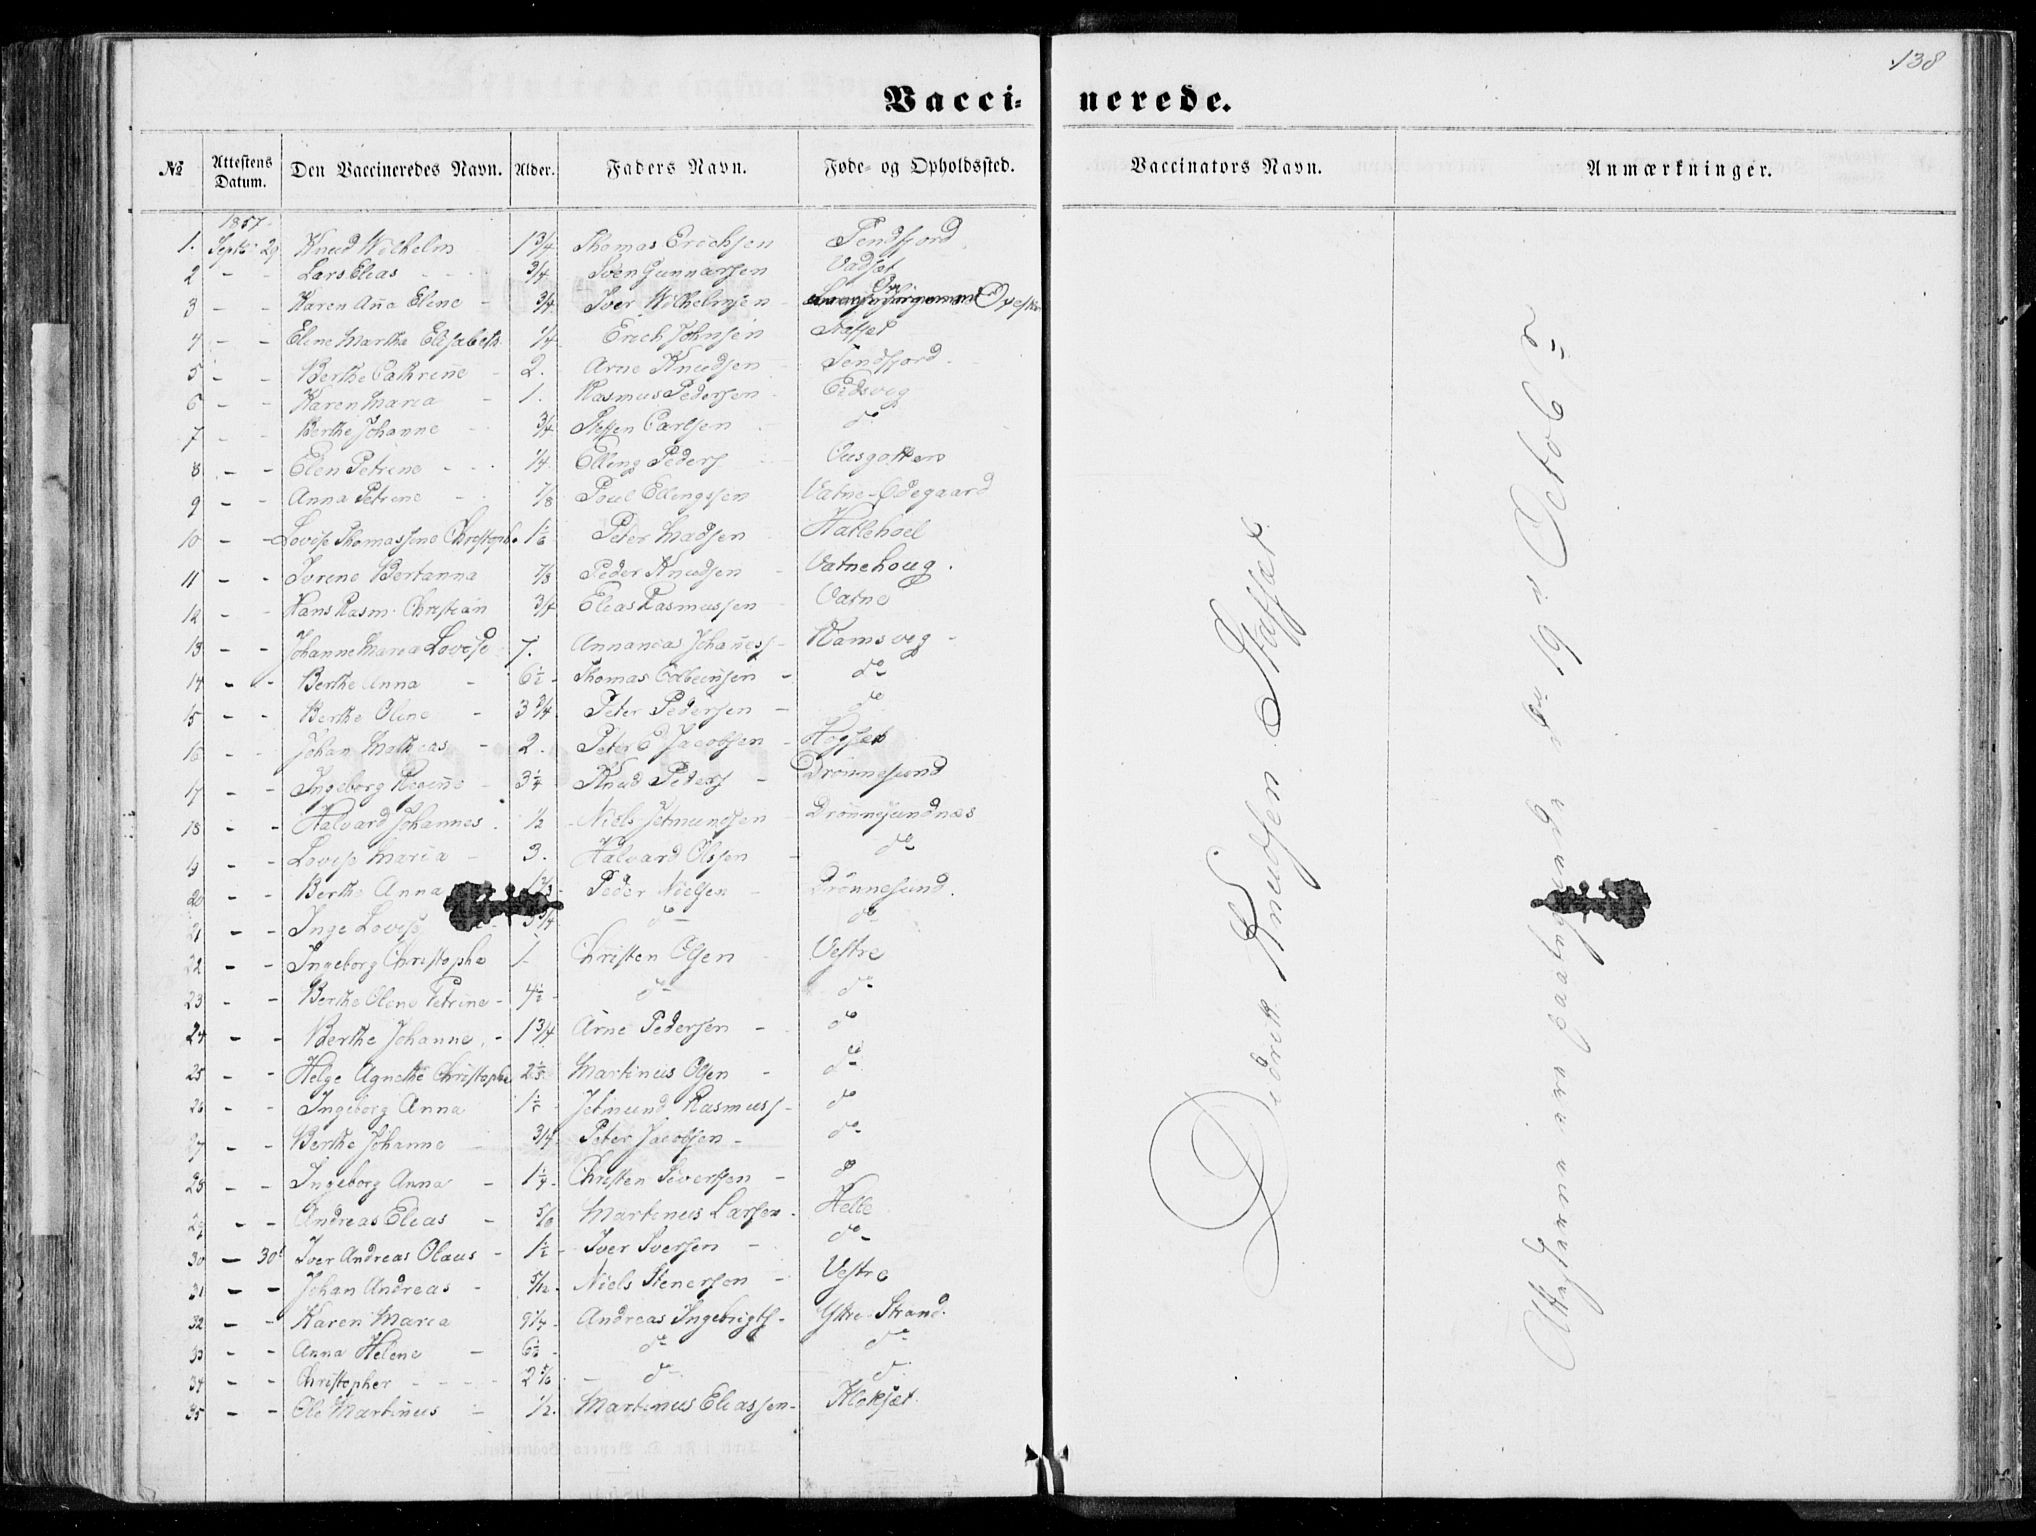 138
Vacci- nerede.
№ Attestens Datum. Den Vaccineredes Navn. Alder. Faders Navn. Føde- og Opholdssted. Vaccinators Navn. Anmærkninger.
1857
1. Septbr 29 Knud Wilhelm 1 3/4 Thomas Erichsen Tendfjord
2 - - Lars Elias 3/4 Sven Gunnarsen Vadset
3 - - Karen Aña Elene 3/4 Iver Wilhelmsen
4 - - Elene Martha Elisabeth 1/4 Erich Johnsen Staffset
5 - - Berthe Cathrine 2. Arne Knudsen Tendfjord
6 - - Karen Maria 1. Rasmus Pedersen Eidsvig
7 - - Berthe Johanne 3/4 Steffen Carlsen do
8 - - Elen Petrine 1/4 Elling Peders Uusgotten
9 - - Anna Petrine 7/8 Poul Ellingssen Vatne-Ødegaard
10 - - Lovise Thomassine Christophe 1 1/6 Peter Madsen Hatlehoel
11 - - Sørene Bertanna 7/8 Peder Knudsen Vatnehoug.
12 - - Hans Rasm. Christian 3/4 Elias Rasmussen Vatne
13 - - Johanne Maria Lovise 7. Annanias Johañess Hamsvig
14 - - Berthe Anna 6 1/2 Thomas Colbeinsen do
15 - - Berthe Oline 3 3/4 Peter Pedersen do
16 - - Johan Mathias 2. Peter E Jacobsen Hogset
17 - - Ingeborg Regine 3 1/4 Knud Peders Drønnesund
18 - - Halvard Johannes 1/2 Niels Jetmundsen Drønnesundnæs
19 - - Lovise Maria 3. Halvard Olssen do
20 - - Berthe Anna 1 2/3 Peder Nielsen Drønnesund.
21 - - Inge Lovise 3/4 do do
22 - - Ingeborg Christophe 1 Christen Olsen Vestre
23 - - Berthe Oline Petrine 4 1/2 do do
24 - - Berthe Johanne 1 3/4 Arne Pedersen do
25 - - Helge Agnethe Christophe 2 1/5 Martinus Olsen do
26 - - Ingeborg Anna 1 1/5 Jetmund Rasmuss do
27 - - Berthe Johanne 3/4 Peter Jacobsen do
28 - - Ingeborg Anna 1 1/4 Christen Sivertsen do
29 - - Andreas Elias 5/6 Martinus Larsen Helle
30 - 30 Iver Andreas Olaus 1 1/2 Iver Iversen do
31 - - Johan Andreas 5/12 Niels Stenersen Vestre
32 - - Karen Maria 9 1/4 Andreas Ingebrigts Ytre-Strand.
33 - - Anna Helene 6 1/2 do do
34 - - Christopher 2 5/6 do do
35 - - Ole Martinus 1/2 Martinus Eliassen Klokset
Didrik Knudsen Staffset
Attesterne ere paategnede den 19de Octobr